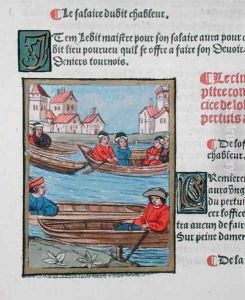 ¶ Le salaire dudit chableur.
Item Ledit maistre pour son salaire aura pour
dit lieu pourveu quil se offre a faire son Devoir
Deniers tournois.
cice de lo
pertuis
¶ De lof
chableur.
Remiere
aura vng
du pertui
cet office
tra aucun de fai
Sur peine damen